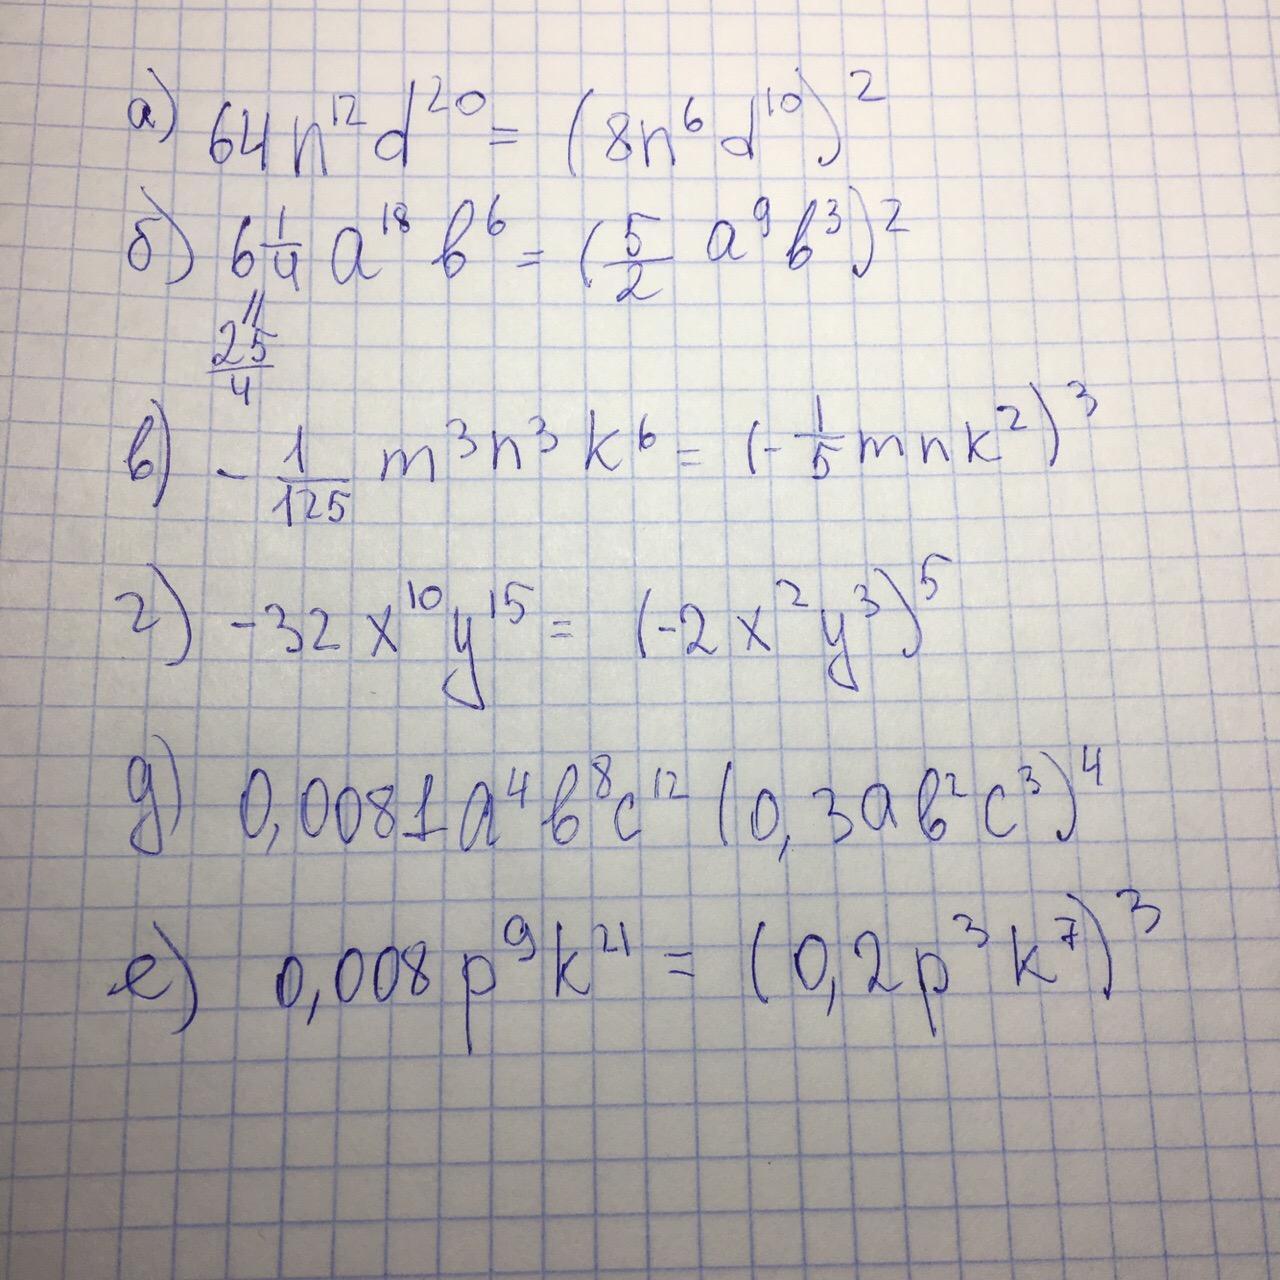 а) 64n¹²d²⁰ = (8n⁶d¹⁰)²
б) 6 1/4 a¹⁸b⁶ = (5/2 a⁹b³)²
||
25/4
в) - 1/125 m³n³k⁶ = (- 1/5 mnk²)³
г) -32x¹⁰y¹⁵ = (-2x²y³)⁵
д) 0,0081a⁴b⁸c¹² (0,3ab²c³)⁴
е) 0,008p⁹k²¹ = (0,2p³k⁷)³